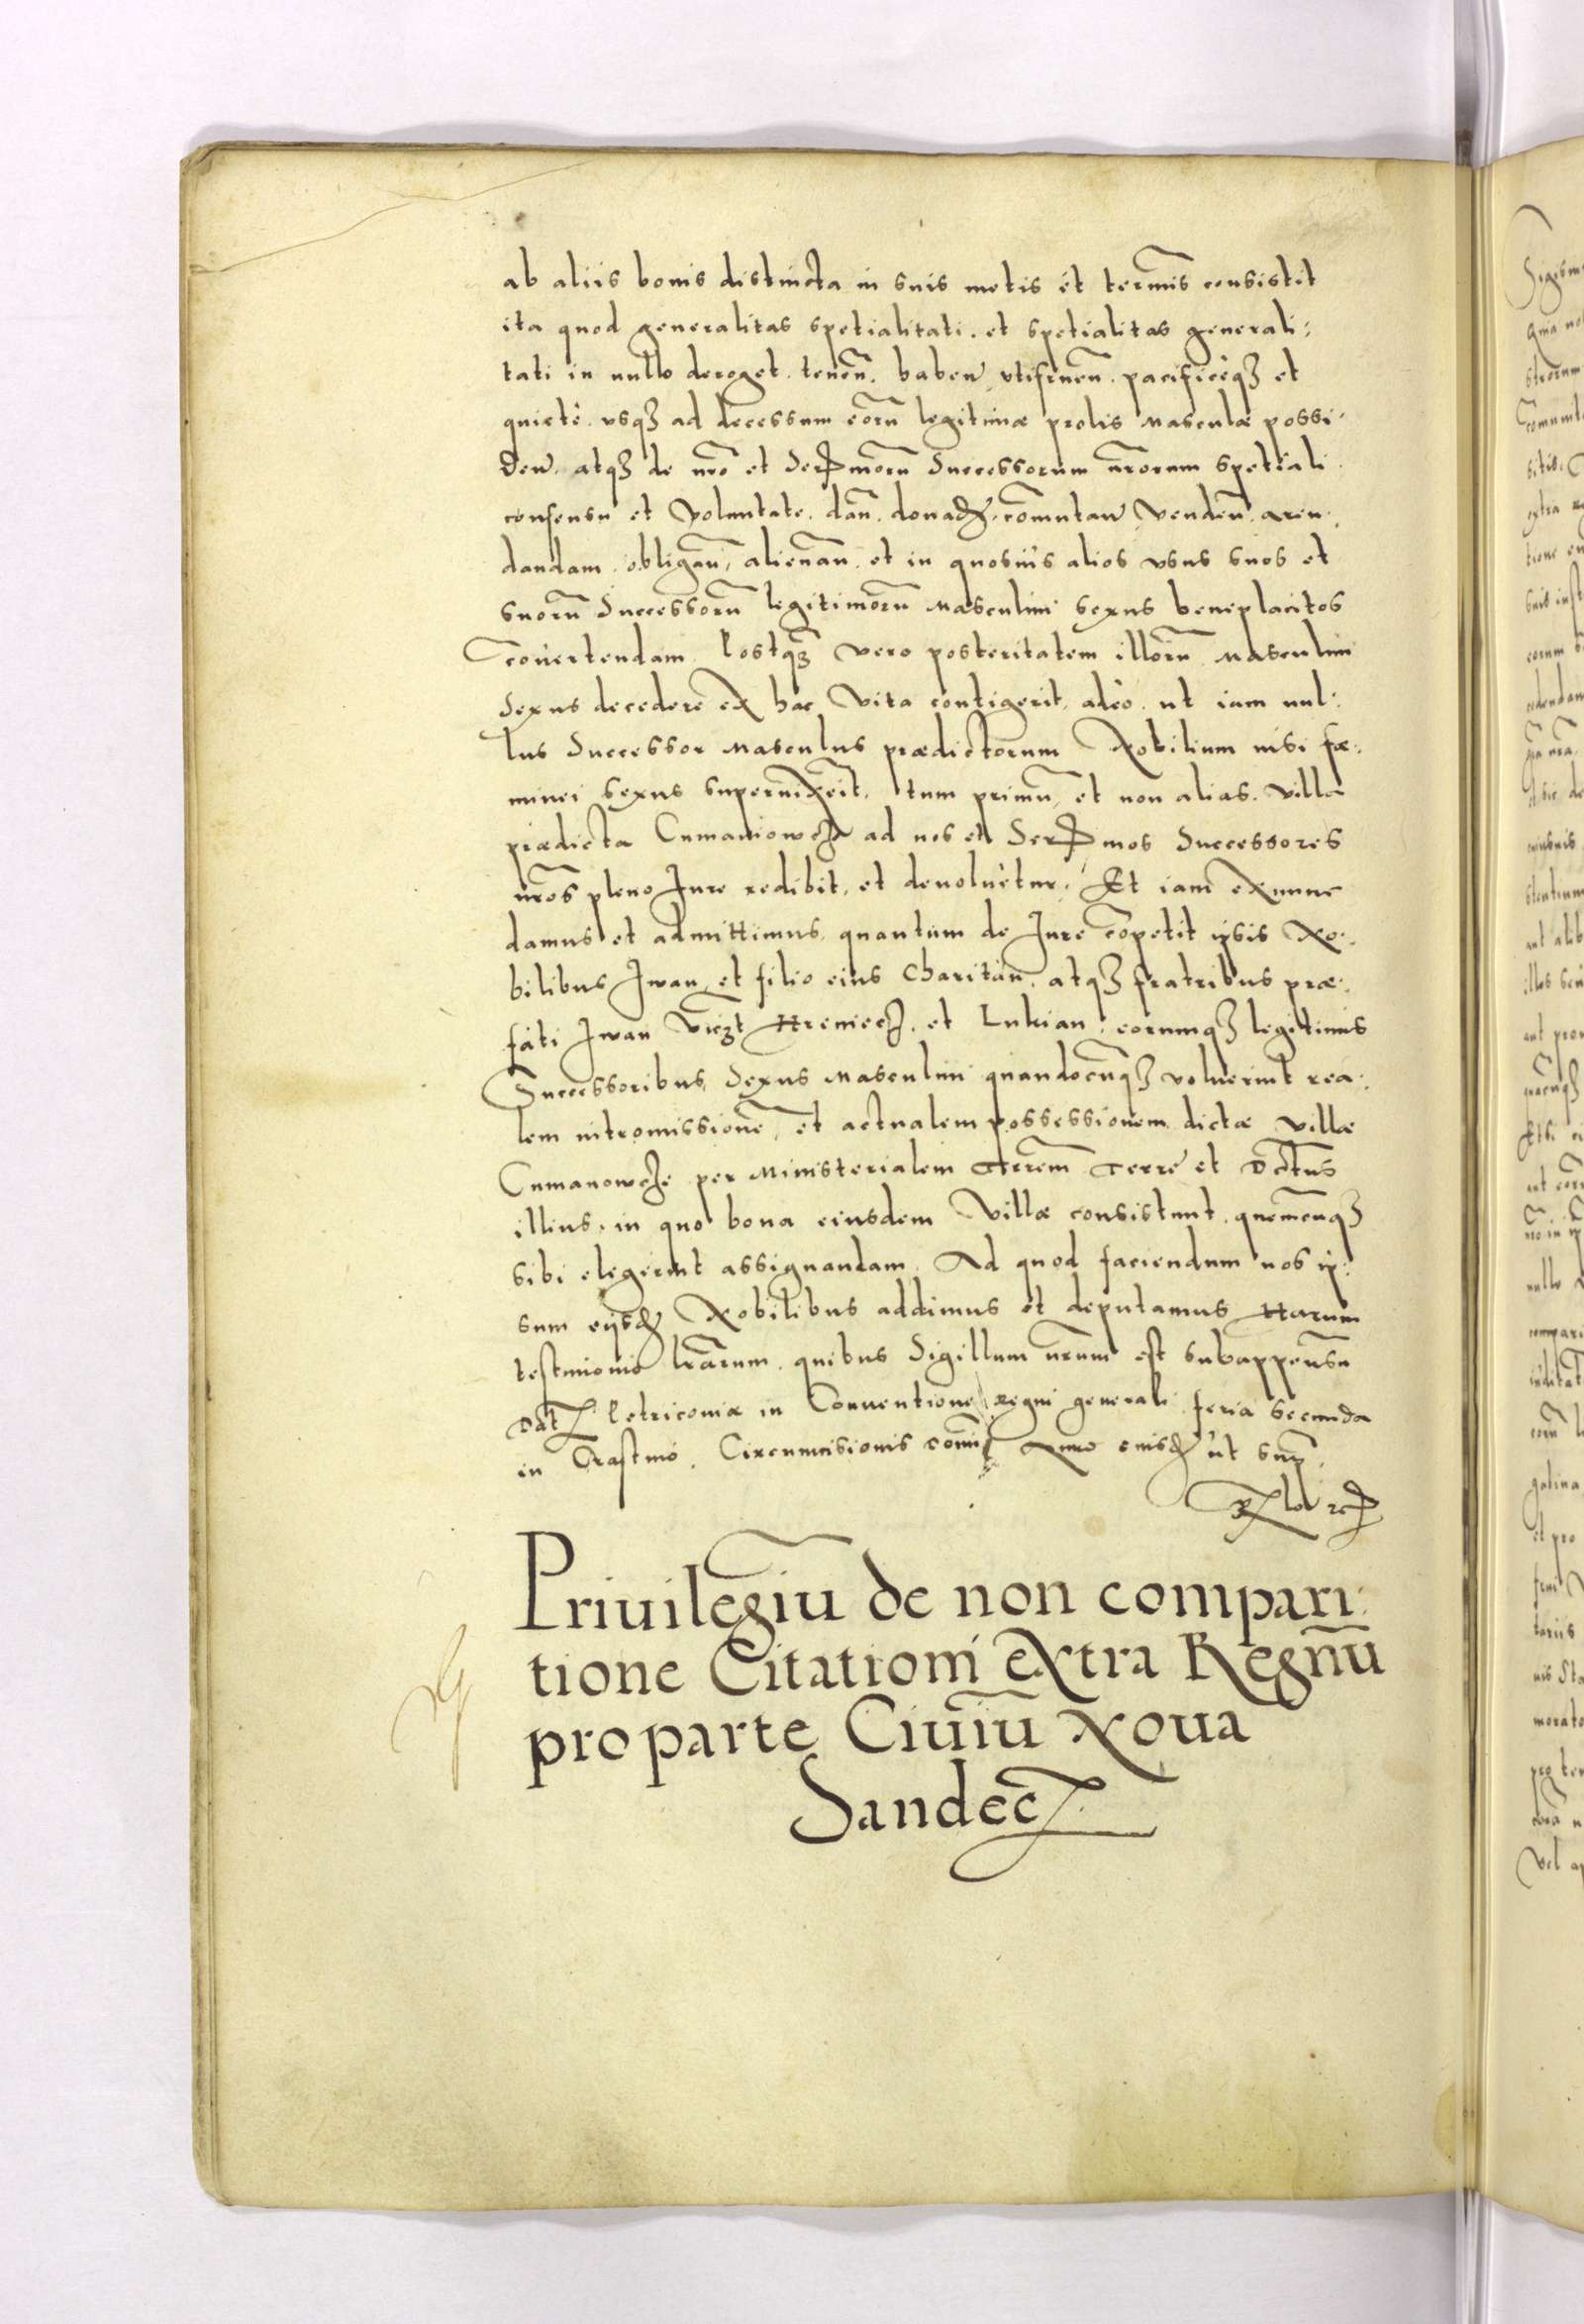 ab aliis bonis distincta in suis metis et termīs consistit
ita quod generalitas spetialitati. et spetialitas generali:
tati in nullo deroget. tenen̄. haben̄ vtifruen̄. pacificèqꝫ et
quietè. vsqꝫ ad decessum eōrū legitimæ prolis Masculæ possi:
den̄. atqꝫ de nr̄o et Ser morū Successorum nr̄orum spetiali
consensu et Voluntate. dan̄. donad. com̄utan̄ Venden̄. aren:
dandam. obligan̄, alienan̄. et in quosuis alios vsus suos et
suorū Successorū legitimorū Masculini sexus beneplacitos
Cōuertendam. Postqꝫ vero posteritatem illorū Masculini
Sexus decedere ex hac Vita contigerit, adeò. ut iam nul:
lus Successor Masculus prædictorum Nobilium nisi fœ:
minei sexus superuixerit. tum primū, et non alias. Villa
prædicta Cumaniowcze ad nos et Ser mos Successores
nr̄os pleno Jure redibit. et deuoluetur. Et iam exnunc
damus et admittimus, quantum de Jure cōpetit ipsis No:
bilibus Jwan, et filio eius Charitan. atqꝫ fratribus præ:
fati Jwan Hreniecz. et Lukian. eorumqꝫ legitimis
Successoribus, Sexus Masculini quandocūqꝫ voluerint rea:
lem intromissionē, et actualem possessionem dictæ villæ
Cumanowcze per Ministerialem Terre et
illius. in quo bona eiusdem Villæ consistunt. quemcūqꝫ
sibi elegerint assignandam. Ad quod faciendum nos ip:
sum eijsd Nobilibus addimus et deputamus Harum
testimonio lr̄arum. quibus Sigillum nr̄um est subappensū
Dat Petricouiæ in Conuentione regni generali feria secunda
in Crastino. Circumcisionis Anno eiusd ut sup̄.

Priuilegiū de non compari:
tione Citationi extra Regnū
pro parte Ciuiū Noua
Sandec